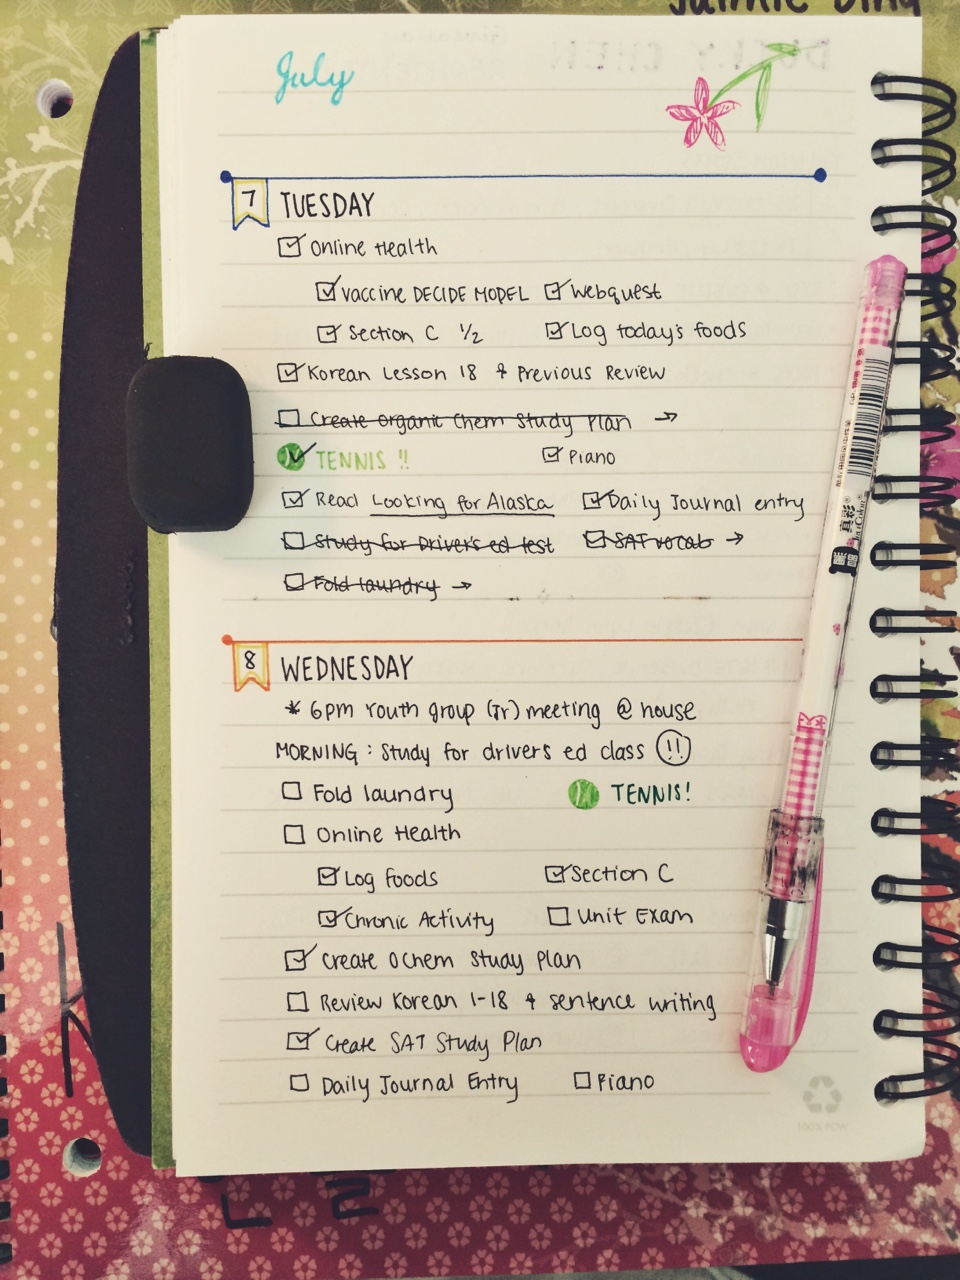 July
7 TUESDAY
Online Health
Vaccine DECIDE MODEL Webquest
Section C 1/2 Log today's foods
Korean Lesson 18 & Previous Review
Create Organic Chem Study Plan →
TENNIS !! Piano
Read Looking for Alaska Daily Journal entry
Study for Driver's ed test SAT vocab →
Fold laundry →
8 WEDNESDAY
* 6pm Youth group (Jr) meeting @ house
MORNING : Study for drivers ed class !!
Fold laundry TENNIS!
Online Health
Log foods Section C
Chronic Activity Unit Exam
Create OChem Study Plan
Review Korean 1-18 & sentence writing
Create SAT Study Plan
Daily Journal Entry Piano
100% PCW
真彩